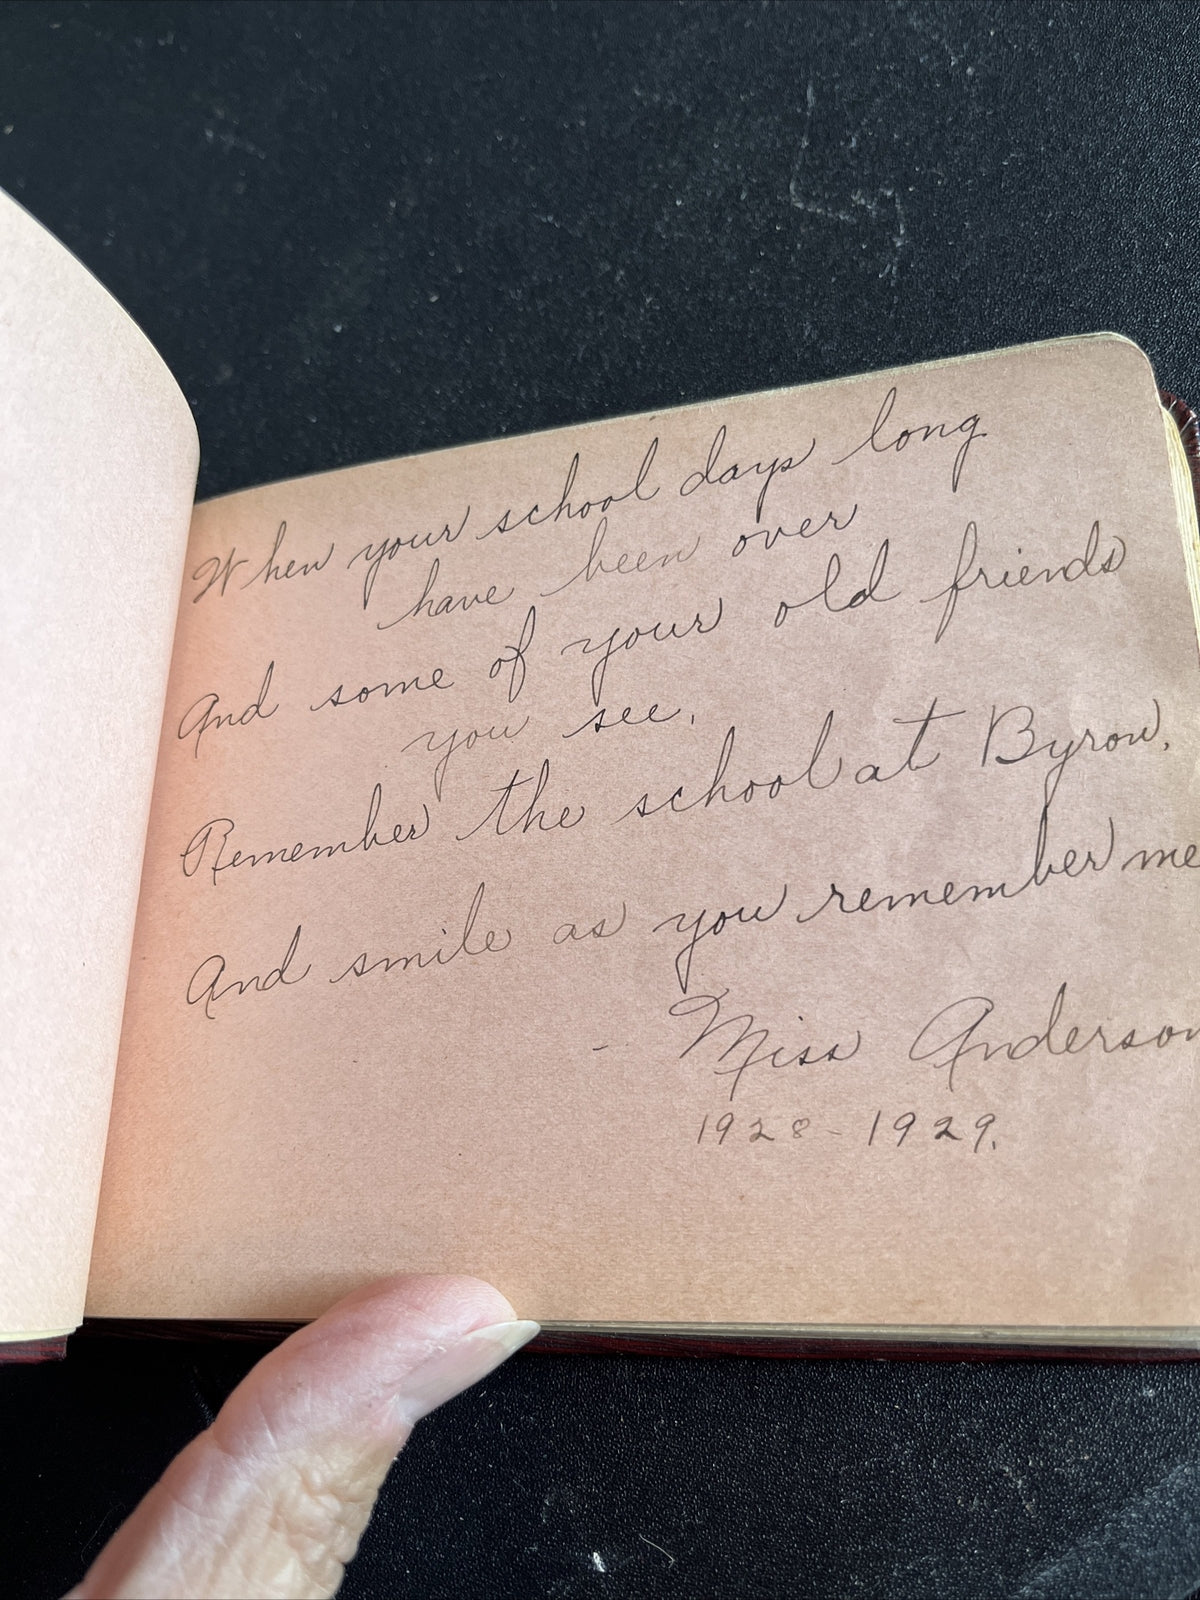 When your school days long
have been over
And some of your old friends
you see.
Remember the school at Byron.
And smile as you remember me
- Miss Anderson
1928-1929.